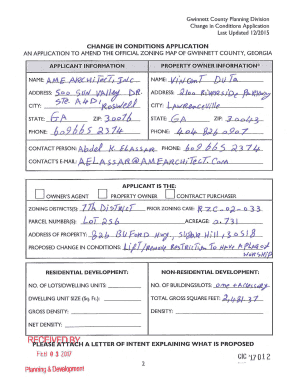 Gwinnett County Planning Division
Change in Conditions Application
Last Updated 12/2015
CHANGE IN CONDITIONS APPLICATION
AN APPLICATION TO AMEND THE OFFICIAL ZONING MAP OF GWINNETT COUNTY, GEORGIA
APPLICANT INFORMATION
NAME: AME ARCHITECT, INC
ADDRESS: 500 SUN VALLEY DR.
STE A4D1
CITY: Roswell
STATE: GA ZIP: 30076
PHONE: 609 665 2374
PROPERTY OWNER INFORMATION*
NAME: Vincent Duta
ADDRESS: 2100 Riverside Parkway
CITY: Lawrenceville
STATE: GA ZIP: 30043
PHONE: 404 826 0907
CONTACT PERSON: Abdel K. ELASSAR PHONE: 609 665 2374
CONTACT'S E-MAIL: AELASSAR@AMEARCHITECT.COM
APPLICANT IS THE:
OWNER'S AGENT PROPERTY OWNER CONTRACT PURCHASER
ZONING DISTRICT(S): 7th DISTRICT PRIOR ZONING CASE: RZC-02-033
PARCEL NUMBER(S): LOT 256 ACREAGE: 0.731
ADDRESS OF PROPERTY: 326 BUFORD Hwy, Sugar Hill, 30518
PROPOSED CHANGE IN CONDITIONS: Lift/Remove RESTRICTION TO HAVE A PLACE OF
WORSHIP
RESIDENTIAL DEVELOPMENT:
NO. OF LOTS/DWELLING UNITS
DWELLING UNIT SIZE (Sq. Ft.):
GROSS DENSITY:
NET DENSITY:
NON-RESIDENTIAL DEVELOPMENT:
NO. OF BUILDINGS/LOTS: one + Accessory
TOTAL GROSS SQUARE FEET: 2,481.37
DENSITY:
RECEIVED BY
PLEASE ATTACH A LETTER OF INTENT EXPLAINING WHAT IS PROPOSED
FEB 03 2017
2
CIC '17 012
Planning & Development